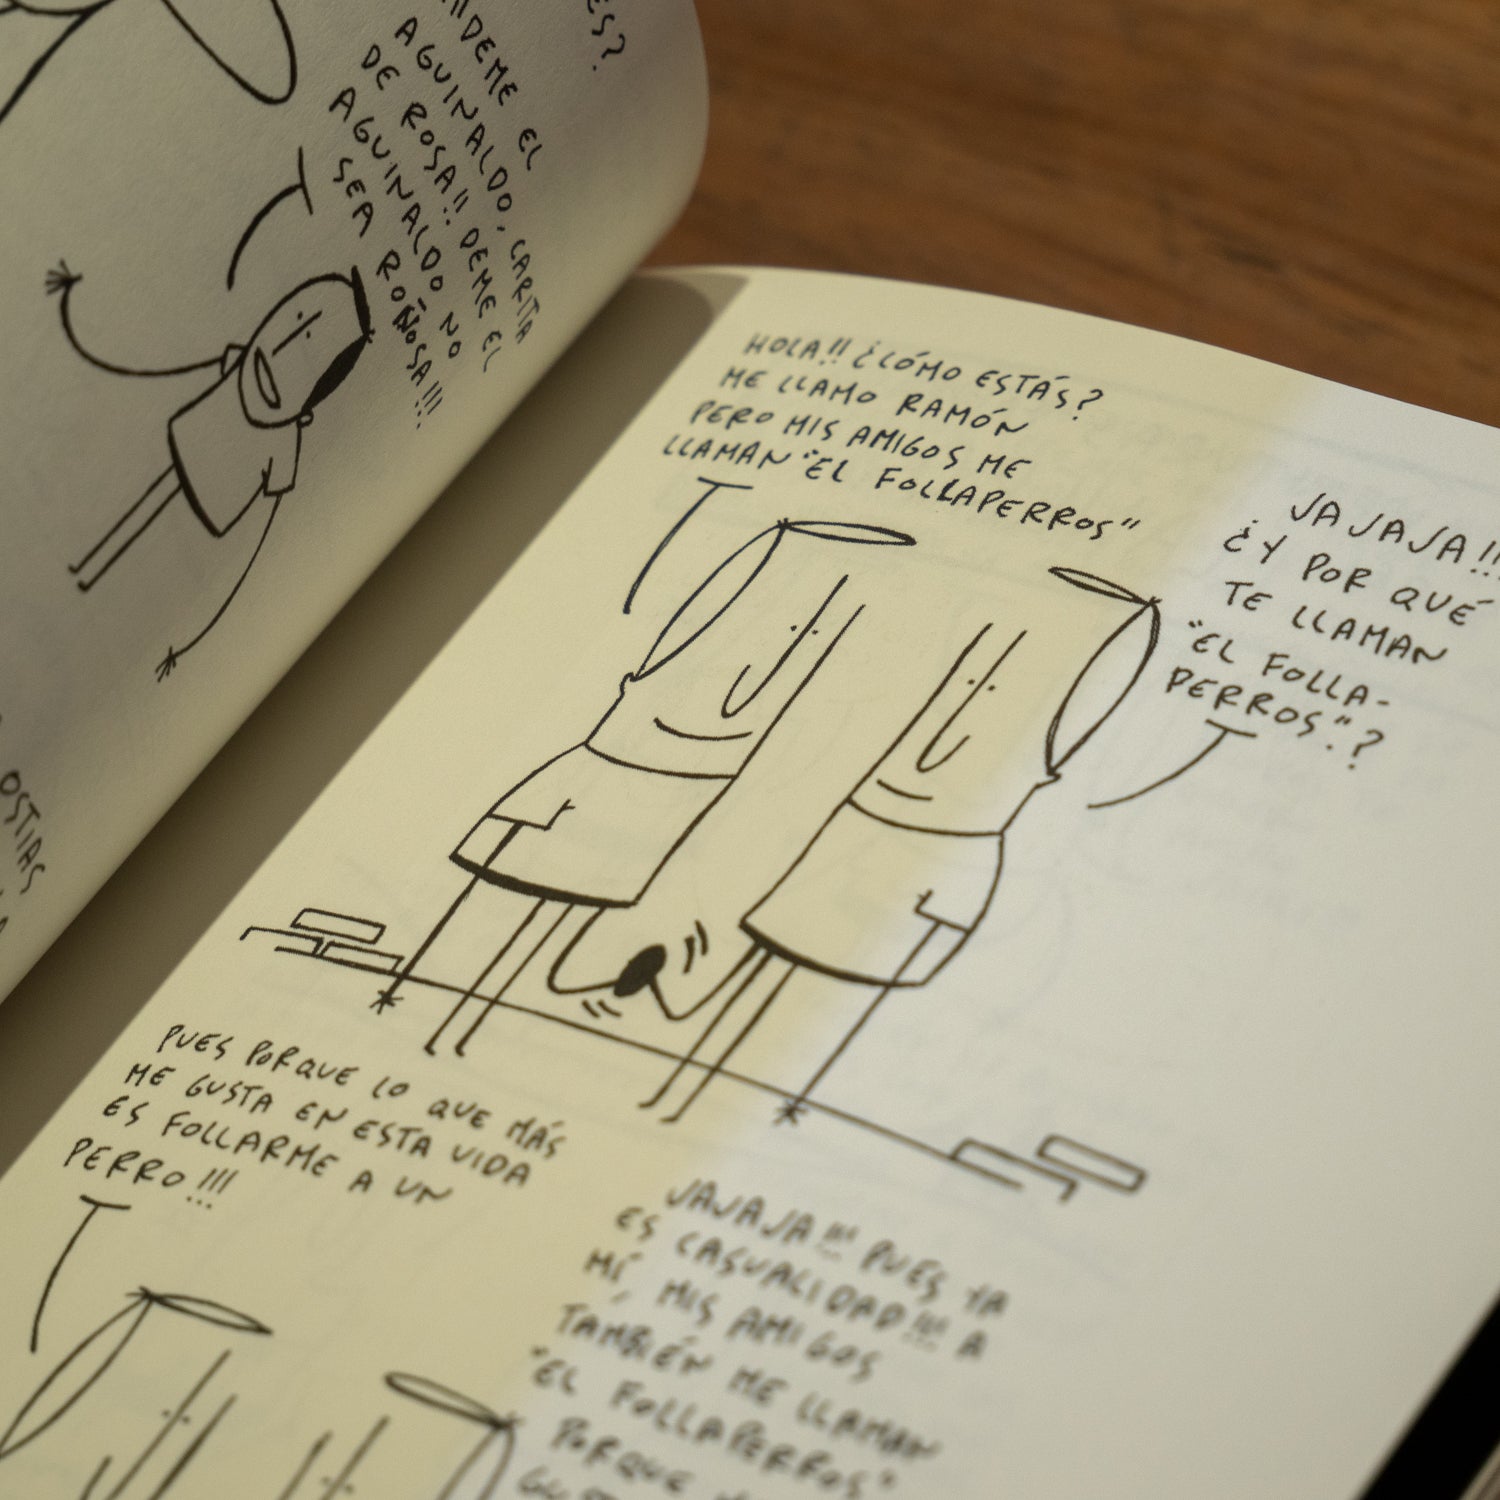 ES?
NDEME EL
AGUINALDO, CARITA
DE ROSA!! DEME EL
AGUINALDO NO
SEA ROÑOSA!!!
OSTIAS
HOLA!! ¿CÓMO ESTÁS?
ME LLAMO RAMÓN
PERO MIS AMIGOS ME
LLAMAN "EL FOLLAPERROS"
JAJAJA!!!
¿Y POR QUÉ
TE LLAMAN
"EL FOLLA-
PERROS"?
PUES PORQUE LO QUE MÁS
ME GUSTA EN ESTA VIDA
ES FOLLARME A UN
PERRO!!!
JAJAJA!!! PUES YA
ES CASUALIDAD!!! A
MÍ, MIS AMIGOS
TAMBIÉN ME LLAMAN
"EL FOLLAPERROS"
PORQUE